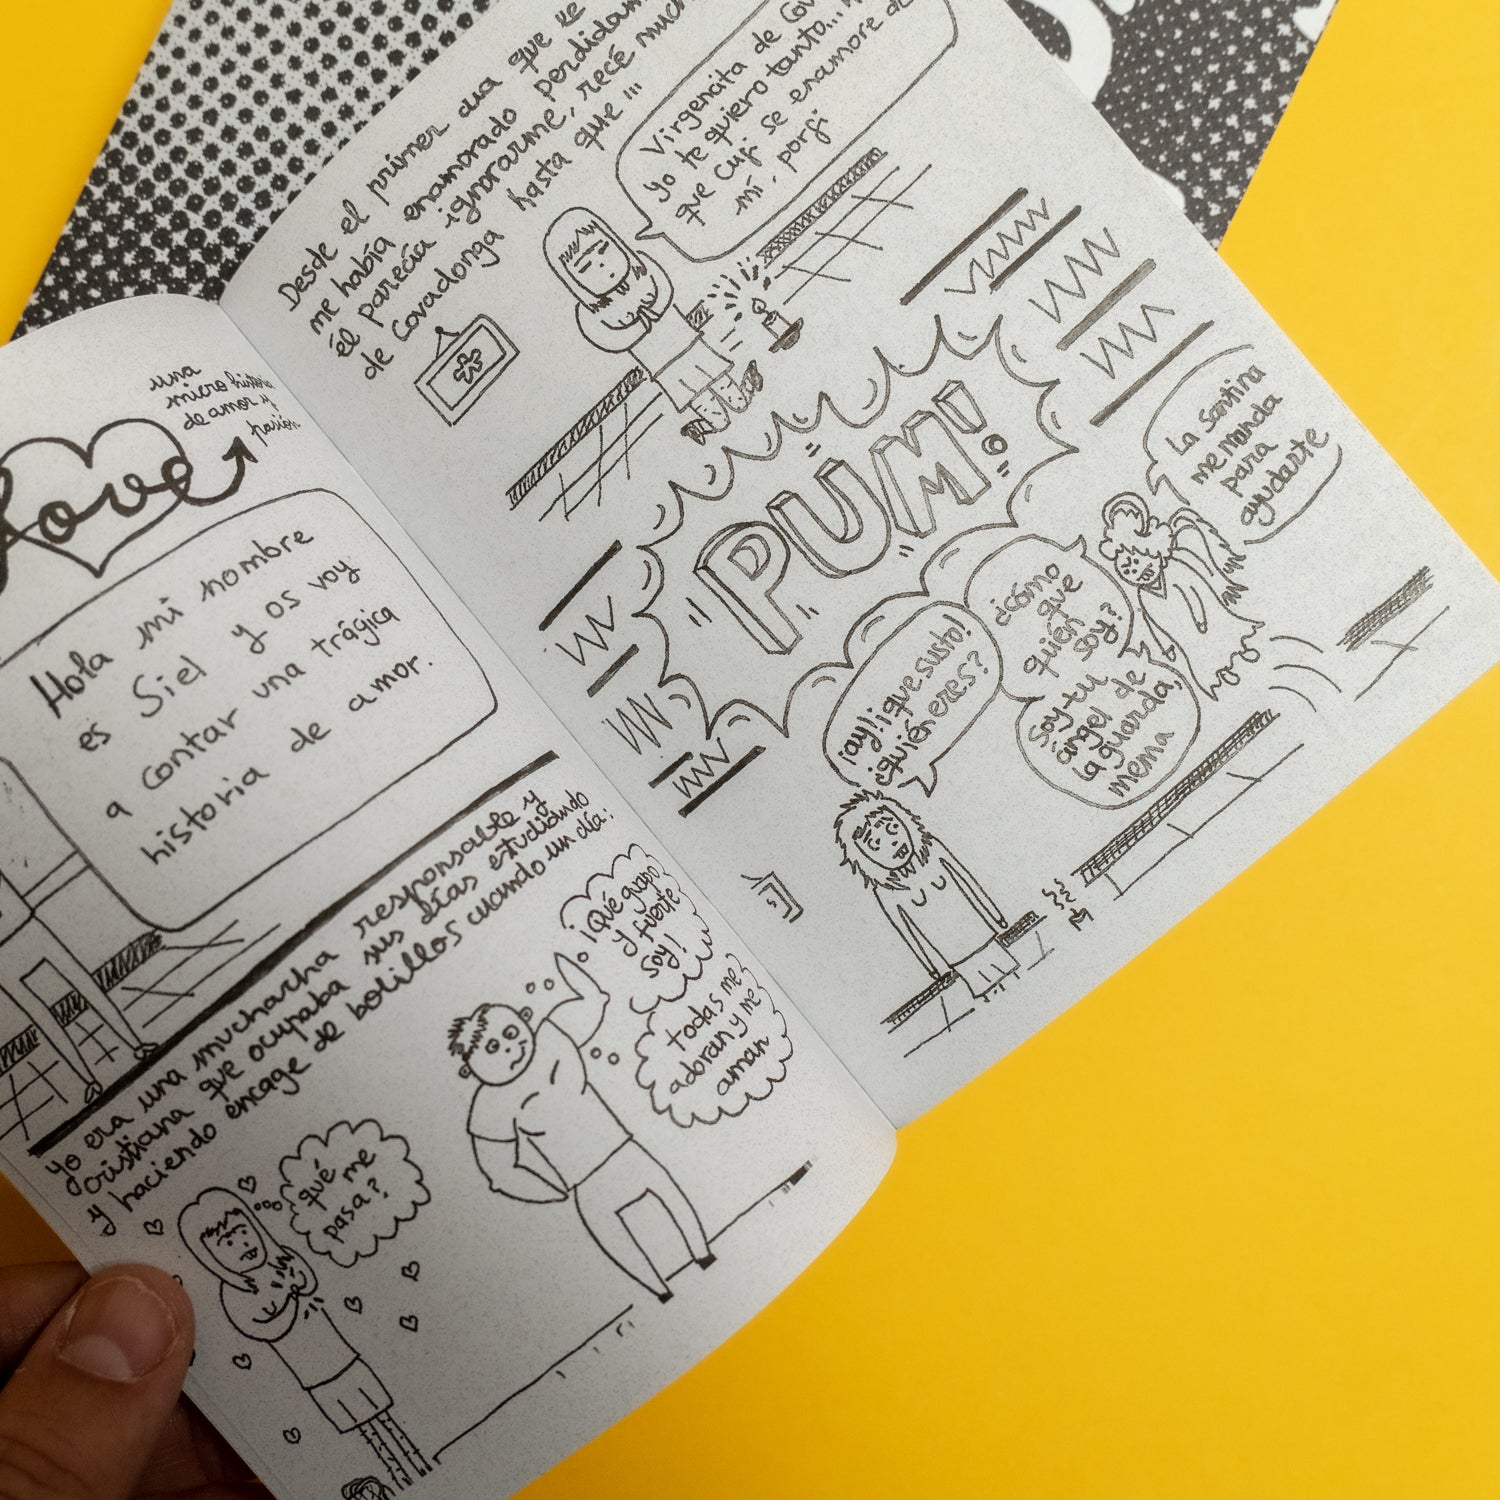 Love
una
micro historia
de amor y
pasión
Hola mi nombre
es Siel y os voy
a contar una trágica
historia de amor.
yo era una muchacha responsable y
cristiana que ocupaba sus días estudiando
y haciendo encage de bolillos cuando un día:
¿qué me
pasa?
¡Qué guapo
y fuerte
soy!
todas me
adoran y me
aman
Desde el primer día que le
me había enamorado
él parecía ignorarme, recé
de Covadonga hasta que ...
Virgencita de
yo te quiero tanto...
que Cufi se enamore de
mí, porfi
PUM!
La Santina
me manda
para
ayudarte
¡ay! ¡que susto!
¿quién eres?
¿cómo
que
quién
soy?
Soy tu
ángel de
la guarda,
mema